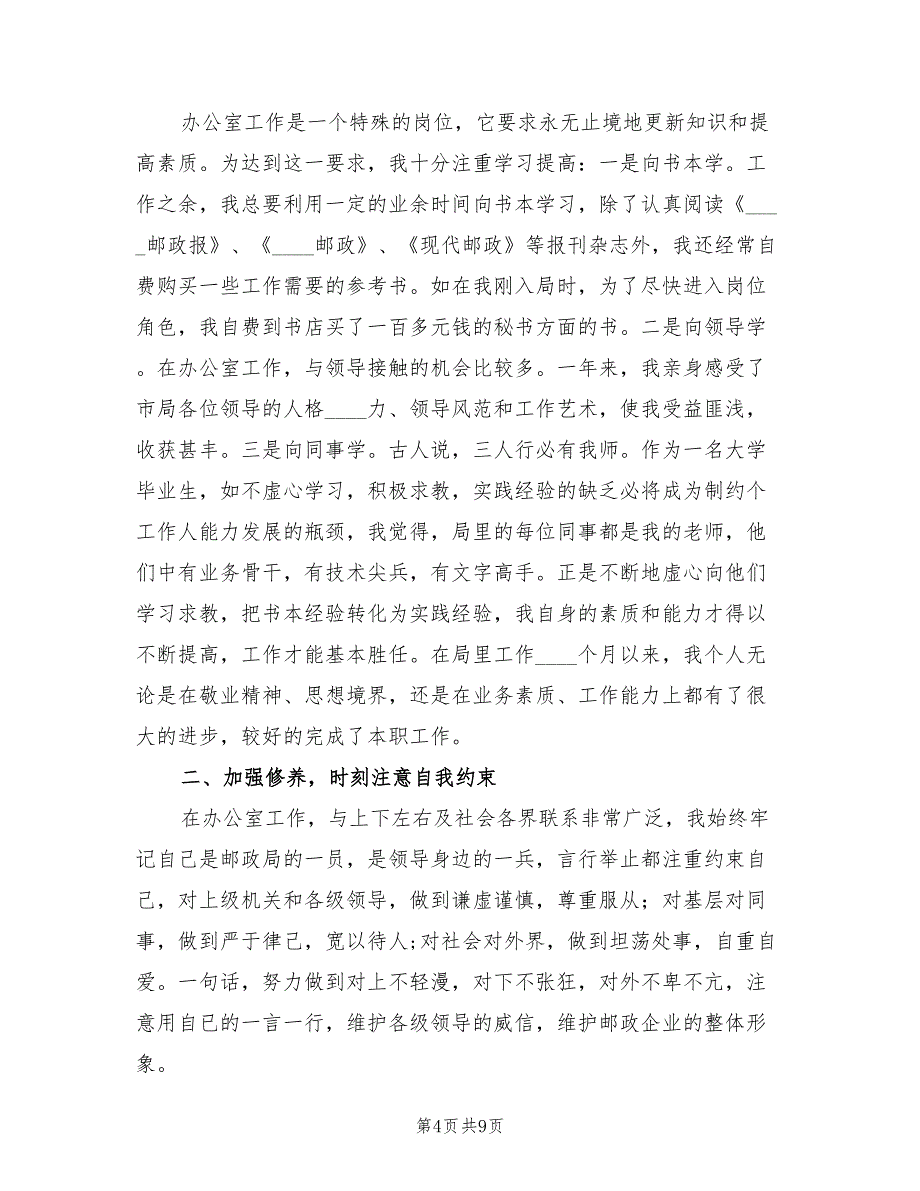 办公室工作是一个特殊的岗位，它要求永无止境地更新知识和提
高素质。为达到这一要求，我十分注重学习提高：一是向书本学。工
作之余，我总要利用一定的业余时间向书本学习，除了认真阅读《___
_邮政报》、《____邮政》、《现代邮政》等报刊杂志外，我还经常自
费购买一些工作需要的参考书。如在我刚入局时，为了尽快进入岗位
角色，我自费到书店买了一百多元钱的秘书方面的书。二是向领导学
。在办公室工作，与领导接触的机会比较多。一年来，我亲身感受了
市局各位领导的人格____力、领导风范和工作艺术，使我受益匪浅，
收获甚丰。三是向同事学。古人说，三人行必有我师。作为一名大学
毕业生，如不虚心学习，积极求教，实践经验的缺乏必将成为制约个
工作人能力发展的瓶颈，我觉得，局里的每位同事都是我的老师，他
们中有业务骨干，有技术尖兵，有文字高手。正是不断地虚心向他们
学习求教，把书本经验转化为实践经验，我自身的素质和能力才得以
不断提高，工作才能基本胜任。在局里工作____个月以来，我个人无
论是在敬业精神、思想境界，还是在业务素质、工作能力上都有了很
大的进步，较好的完成了本职工作。
二、加强修养，时刻注意自我约束
在办公室工作，与上下左右及社会各界联系非常广泛，我始终牢
记自己是邮政局的一员，是领导身边的一兵，言行举止都注重约束自
己，对上级机关和各级领导，做到谦虚谨慎，尊重服从；对基层对同
事，做到严于律己，宽以待人;对社会对外界，做到坦荡处事，自重自
爱。一句话，努力做到对上不轻漫，对下不张狂，对外不卑不亢，注
意用自已的一言一行，维护各级领导的威信，维护邮政企业的整体形
象。
第4页 共9页